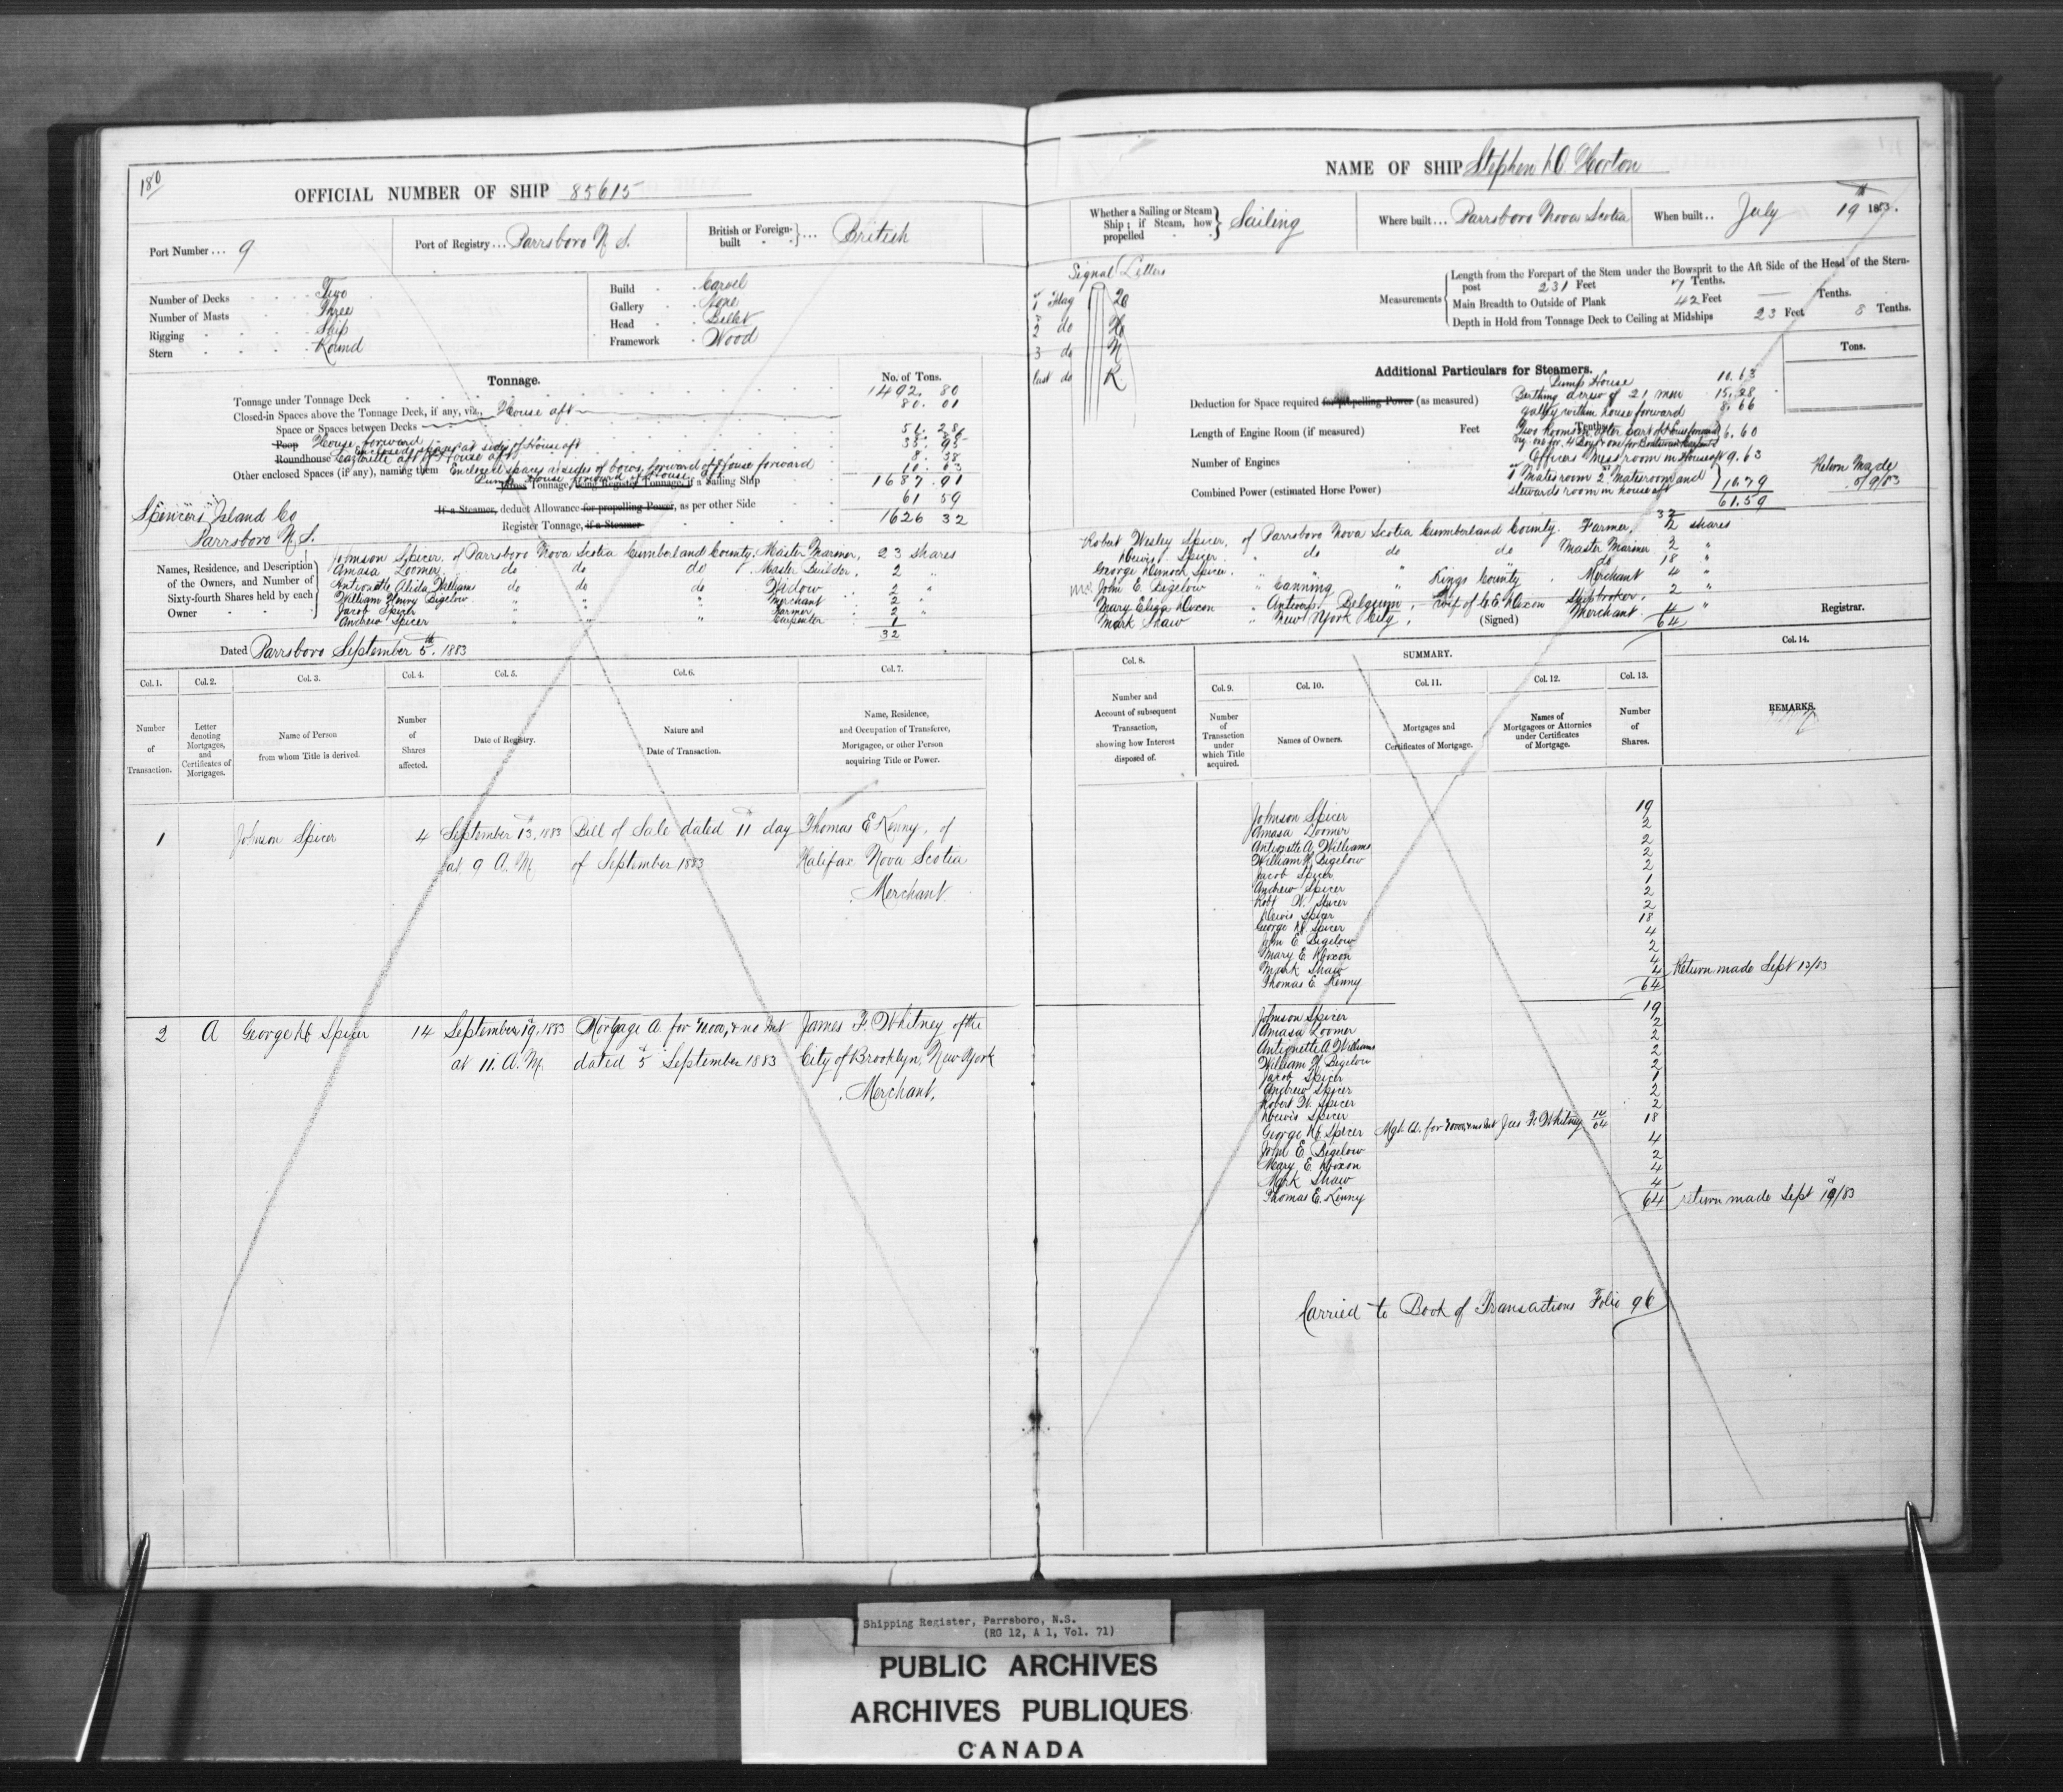 180
OFFICIAL NUMBER OF SHIP 85615
Port Number ... 9
Port of Registry ... Parrsboro N. S.
British or Foreign-built ... British
Number of Decks Two
Number of Masts Three
Rigging Ship
Stern Round
Build Carvel
Gallery None
Head Billet
Framework Wood
Tonnage.
No. of Tons.
Tonnage under Tonnage Deck 1492. 80
Closed-in Spaces above the Tonnage Deck, if any, viz., House aft 80. 01
Space or Spaces between Decks
Poop House forward 51. 28
Roundhouse enclosed spaces at sides of House aft 35. 98
Other enclosed Spaces (if any), naming them Enclosed spaces at sides of bows, forward of House forward 8. 38
Pump House forward of House aft 10. 63
Gross Tonnage, being Register Tonnage, if a Sailing Ship 1687. 91
If a Steamer, deduct Allowance for propelling Power, as per other Side 61 59
Register Tonnage, if a Steamer 1626 32
Spencers Island Co
Parrsboro N. S.
Names, Residence, and Description of the Owners, and Number of Sixty-fourth Shares held by each Owner
Johnson Spicer. of Parrsboro Nova Scotia Cumberland County. Master Mariner, 23 shares
Amasa Loomer. do do do Master Builder, 2 "
Antionette Alida Williams do do do Widow 2 "
William Henry Bigelow " " " Merchant 2 "
Jacob Spicer " " " Farmer 2 "
Andrew Spicer " " " Carpenter 1
32
Dated Parrsboro September 5th. 1883
Col. 1.
Col. 2.
Col. 3.
Col. 4.
Col. 5.
Col. 6.
Col. 7.
Number of Transaction.
Letter denoting Mortgages, and Certificates of Mortgages.
Name of Person from whom Title is derived.
Number of Shares affected.
Date of Registry.
Nature and Date of Transaction.
Name, Residence, and Occupation of Transferee, Mortgagee, or other Person acquiring Title or Power.
1 Johnson Spicer 4 September 13, 1883 Bill of Sale dated 11 day Thomas E Kenny, of
at 9 A. M. of September 1883 Halifax Nova Scotia
Merchant
2 A George D Spicer 14 September 19, 1883 Mortgage A. for $10.000, & no Int James F. Whitney of the
at 11. A. M. dated 5 September 1883 City of Brooklyn, New York
Merchant.
NAME OF SHIP Stephen D Horton
Whether a Sailing or Steam Ship; if Steam, how propelled Sailing
Where built ... Parrsboro Nova Scotia
When built .. July 19th 1883.
Signal Letters
1 Flag
2 do
3 do N
last do R.
Measurements
Length from the Forepart of the Stem under the Bowsprit to the Aft Side of the Head of the Stern-
post 231 Feet 7 Tenths.
Main Breadth to Outside of Plank 42 Feet — Tenths.
Depth in Hold from Tonnage Deck to Ceiling at Midships 23 Feet 8 Tenths.
Additional Particulars for Steamers.
Tons.
Pump House 10. 63
Deduction for Space required for propelling Power (as measured)
Berthing crew of 21 men 15. 28
galley within house forward 8. 66
Length of Engine Room (if measured) Feet Tenths
Two Rooms in after part of House forward 6. 60
Number of Engines
Officers Mess room in House aft 9. 63
Combined Power (estimated Horse Power)
1st Mates room 2nd Mates room and
Stewards room in house aft 10. 79
61. 59
Return Made
5/9/83
32
Robert Wesley Spicer. of Parrsboro Nova Scotia Cumberland County. Farmer, 2 shares
Dewis Spicer. " do do do Master Mariner 2 "
George Dimock Spicer. " " " do 18 "
John E. Bigelow " Canning " Kings County. Merchant 4 "
Mary Eliza Dixon " Antwerp Belgium, - wife of Shipbroker. 2 "
Mark Shaw " New York City, (Signed) Merchant. 4 "
64
Registrar.
Col. 8.
SUMMARY.
Col. 14.
Col. 9.
Col. 10.
Col. 11.
Col. 12.
Col. 13.
Number and Account of subsequent Transaction, showing how Interest disposed of.
Number of Transaction under which Title acquired.
Names of Owners.
Mortgages and Certificates of Mortgage.
Names of Mortgagees or Attornies under Certificates of Mortgage.
Number of Shares.
REMARKS.
Johnson Spicer 19
Amasa Loomer 2
Antionette A. Williams 2
William H. Bigelow 2
Jacob Spicer 2
Andrew Spicer 1
Robt W. Spicer 2
Dewis Spicer 2
George D Spicer 18
John E Bigelow 4
Mary E Dixon 2
Mark Shaw 4
Thomas E. Kenny 4
64
Return made Sept 13/83
Johnson Spicer 19
Amasa Loomer 2
Antionette A Williams 2
William H Bigelow 2
Jacob Spicer 2
Andrew Spicer 1
Robert W. Spicer 2
Dewis Spicer 2
George D Spicer Mgt. A. for Jas F. Whitney 14/64 18
John E Bigelow 4
Mary E. Dixon 2
Mark Shaw 4
Thomas E. Kenny 4
64
return made Sept 19/83
Carried to Book of Transactions Folio 96
Shipping Register, Parrsboro, N.S.
(RG 12, A 1, Vol. 71)
PUBLIC ARCHIVES
ARCHIVES PUBLIQUES
CANADA